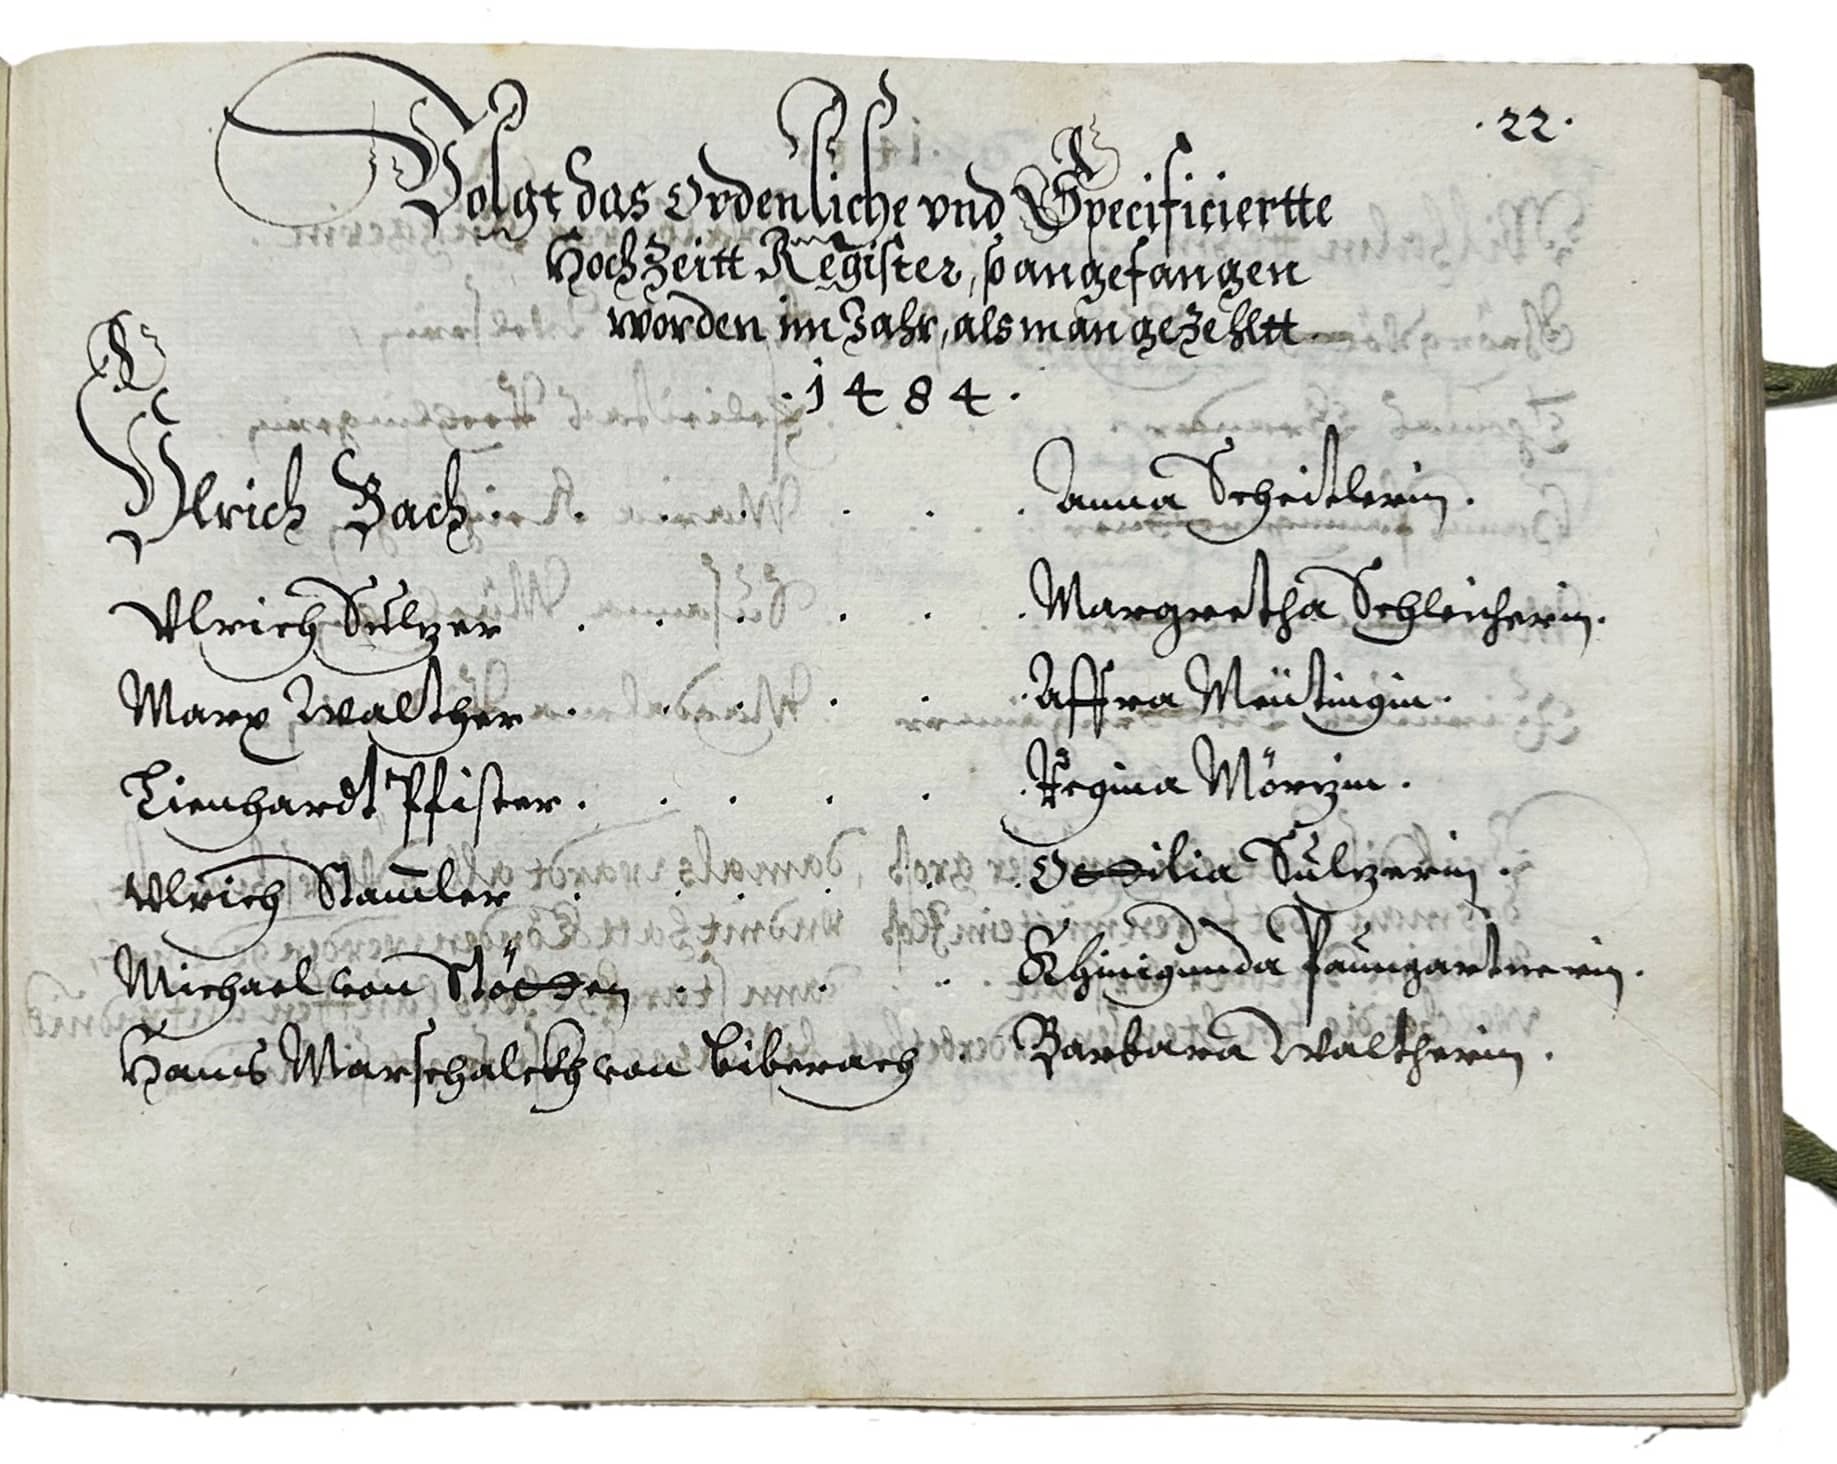 .22.
Volgt das Ordenliche vnd Specificiertte
Hochzeitt Register, so angefangen
worden im Jahr, als man gezehltt
.1484.
Vlrich Bach . . . Anna Scheitlerin.
Vlrich Sulzer . . . . . . Margretha Schleicherin.
Marx Walther . . . . . Affra Meütingin.
Lienhardt Pfister . . . . . Regina Mörizin.
Vlrich Stamler . . . . . . Ottilia Sulzerin.
Michael von Stötten . . . Khinigunda Paungartnerin.
Hanns Marschalckh von Biberach . Barbara Waltherin.